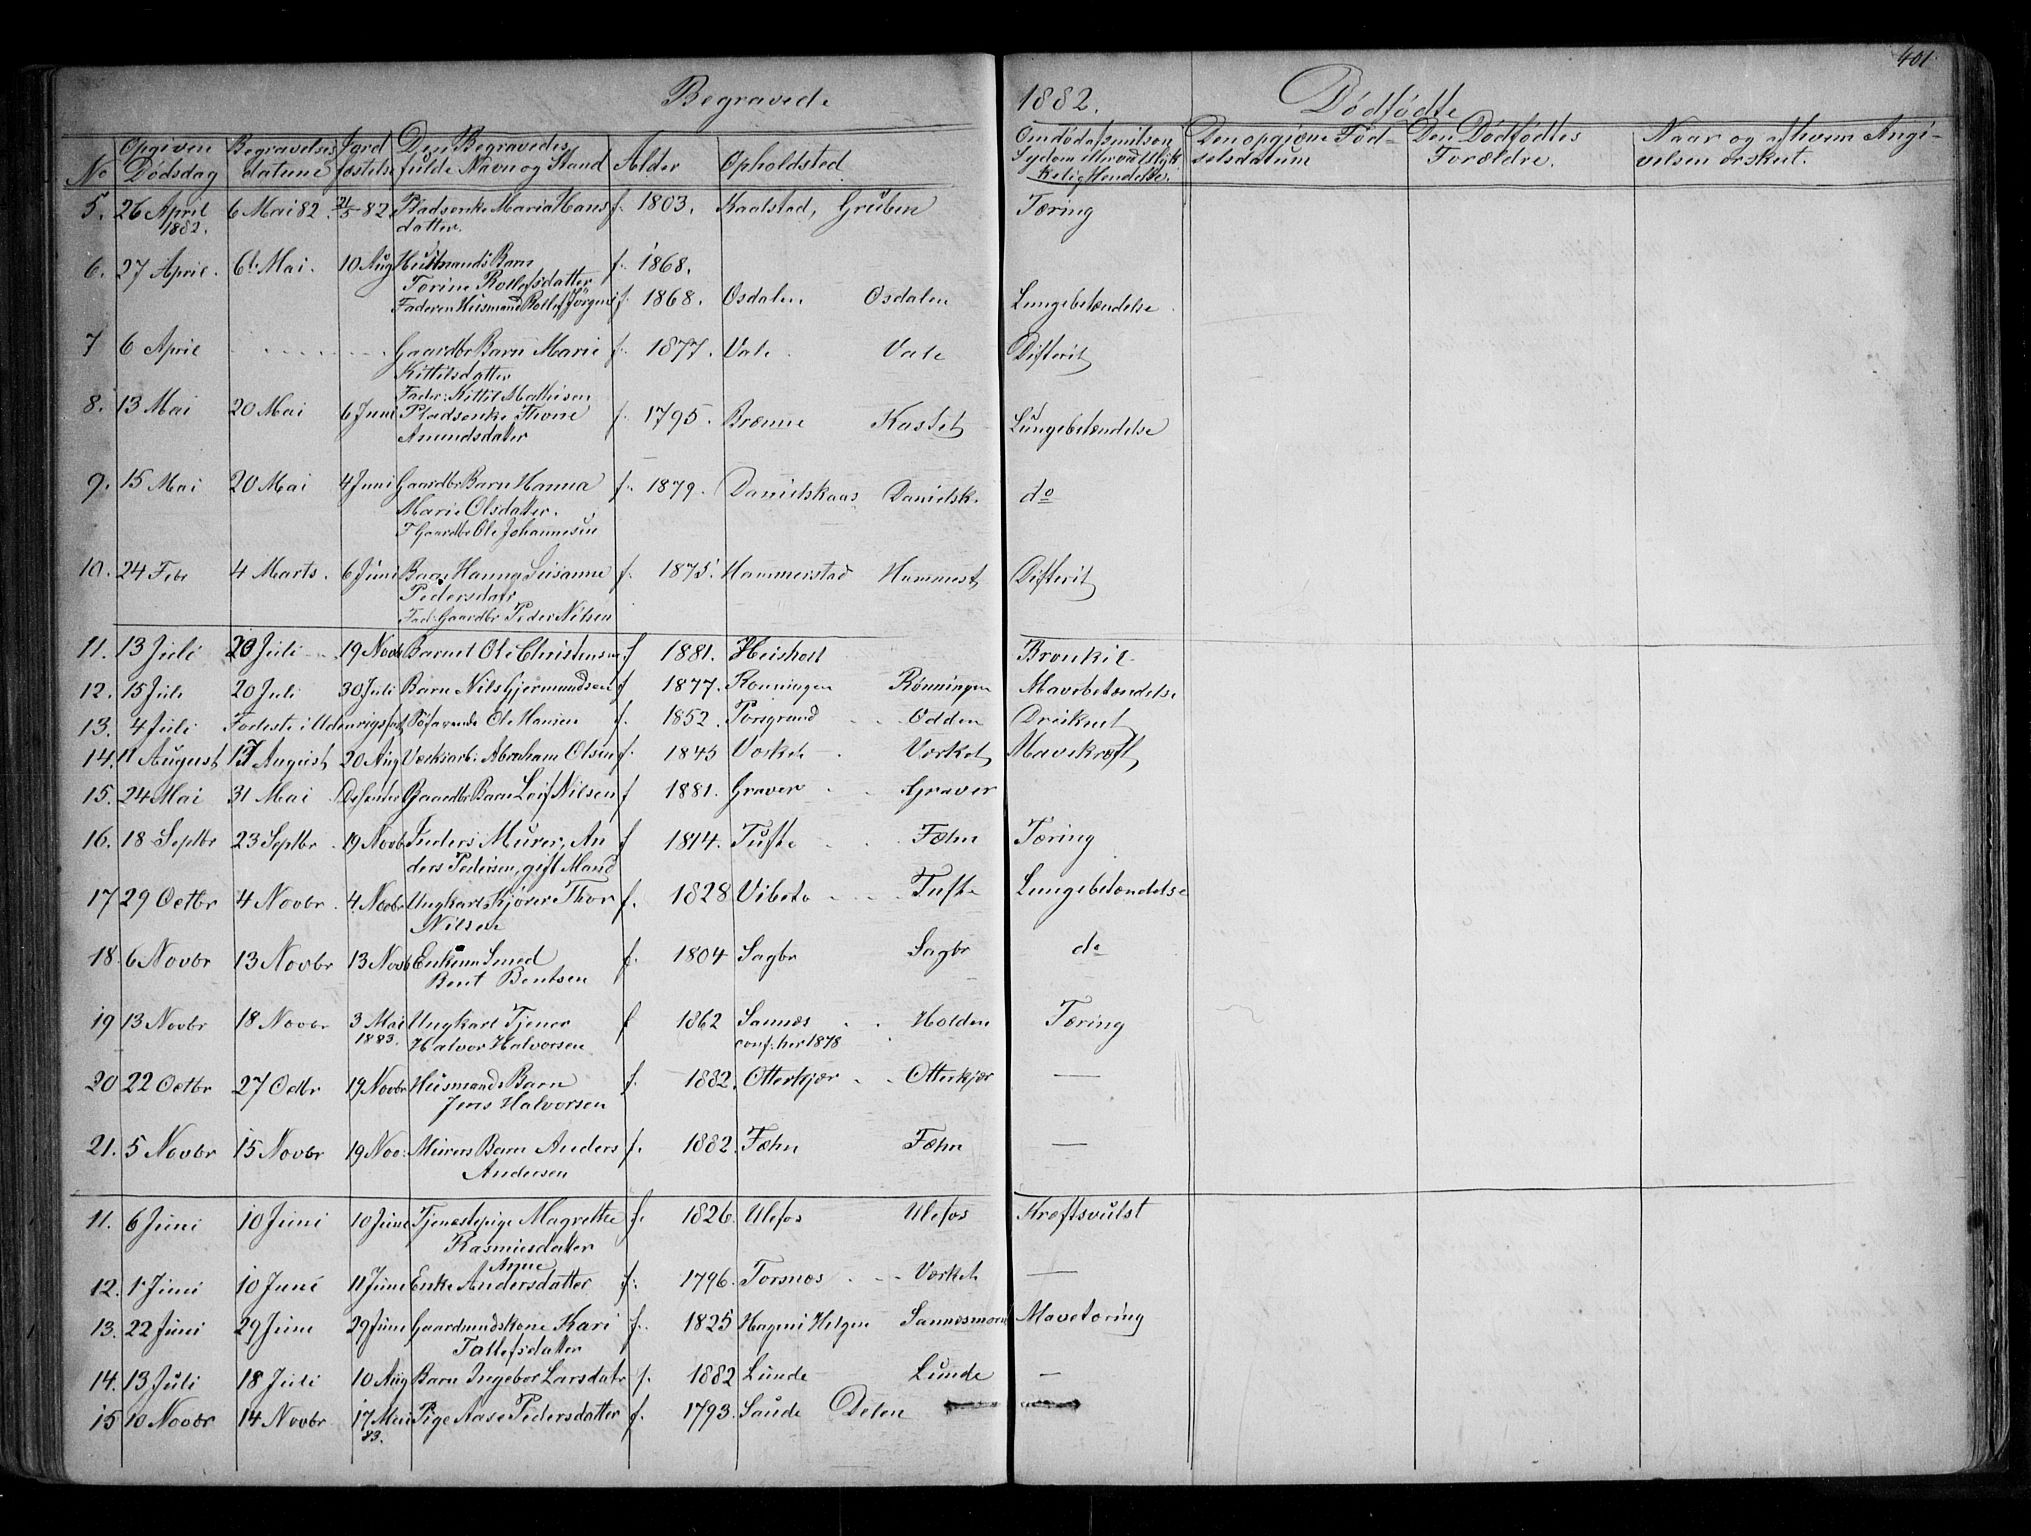 401
Begravede 1882. Dødfødte
No Opgiven Dødsdag Begravelses datum Jord fæstelse Den Begravedes fulde Navn og Stand Alder Opholdsted Den opgivne Fødselsdatum Den Dødfødtes Forældre. Naar og af hvem Angivelsen er skeet.
5. 26 April 1882. 6 Mai 82. 21/5 82. Pladsenke Maria Hans f. 1803. Kaalstad, Gruben Tæring
datter.
6. 27 April. 6 Mai. 10 Aug Husmands Barn f. 1868.
Torine Rollefsdatter
Faderen Husmand Rollef Jørgens f. 1868. Osdalen Osdalen Lungebetændelse
7 6 April Gaardbr Barn Marie f. 1877. Vale Vale Difterit
Kittilsdatter
Fader: Kittil Mathisen
8. 13 Mai 20 Mai 6 Juni Pladsenke Thone f. 1795. Brenne Kastet Lungebetændelse
Amundsdater
9. 15 Mai 20 Mai 4 Juni Gaardbr Barn Hanna f. 1879. Danielskaas Danielsk. do
Marie Olsdatter.
F Gaardbr Ole Johannesen
10. 24 Febr 4 Marts. 6 Juni Barn Hanna Susanne f. 1875. Hammerstad Hammerst Difterit
Pedersdatr
Fad: Gaardbr Peder Nilsen
11. 13 Juli 20 Juli 19 Novb Barnet Ole Christensen f 1881. Heisholt Bronkit
12. 15 Juli 20 Juli 30 Juli Barn Nils Gjermundsen f 1877. Rønningen Rønningen Mavebetændelse
13. 4 Juli Jordfestet i Udenrigs Søfarende Ole Hansen f. 1852. Porsgrund Odden Druknet
14. 11 August 17 August 20 Aug Værksarb. Abraham Olsen f. 1845 Værket Værket Mavekræft
15. 24 Mai 31 Mai Gaardbr Barn Leif Nilsen f 1881. Graver Graver
16. 18 Septbr 23 Septbr 19 Novb Inders Murer, An f 1814. Tufte Fæhn Tæring
ders Pedersen, gift Mand
17 29 Octbr 4 Novbr. 4 Novbr Ungkarl Skjører Thor f. 1828 Vibeto Tufte Lungebetændelse
Nilsen
18. 6 Novbr 13 Novbr 13 Novb Enkem Smed f. 1804 Sagbr Sagbr do
Bent Bentsen
19 13 Novbr 18 Novbr 3 Mai 1883. Ungkarl Tjener f 1862 Sannes Holden Tæring
Halvor Halvorsen conf. her 1878
20 22 Octbr 27 Octbr 19 Novbr Husmands Barn f. 1882. Otterkjær Otterkjær —
Jens Halvorsen
21. 5 Novbr 15 Novbr 19 Nov. Murers Barn Anders f. 1882. Fæhn Fæhn —
Andersen
11. 6 Juni 10 Juni 10 Juni Tjenestepige Magrethe f. 1826. Ulefos Ulefos Kræftsvulst
Rasmusdatter
12. 1 Juni 10 Juni 11 Juni Enke Anne Andersdatter f. 1796. Torsnæs Værket —
13. 22 Juni 29 Juni 29 Juni Gaardmandskone Kari f. 1825 Hagen i Helgen Mavetæring
Tallefsdatter
14. 13 Juli 18 Juli 10 Aug Barn Ingebor Larsdatr f. 1882 Lunde Lunde —
15 10 Novbr 14 Novbr 17 Mai 83. Pige Aase Pedersdatter f. 1793. Saude Delen